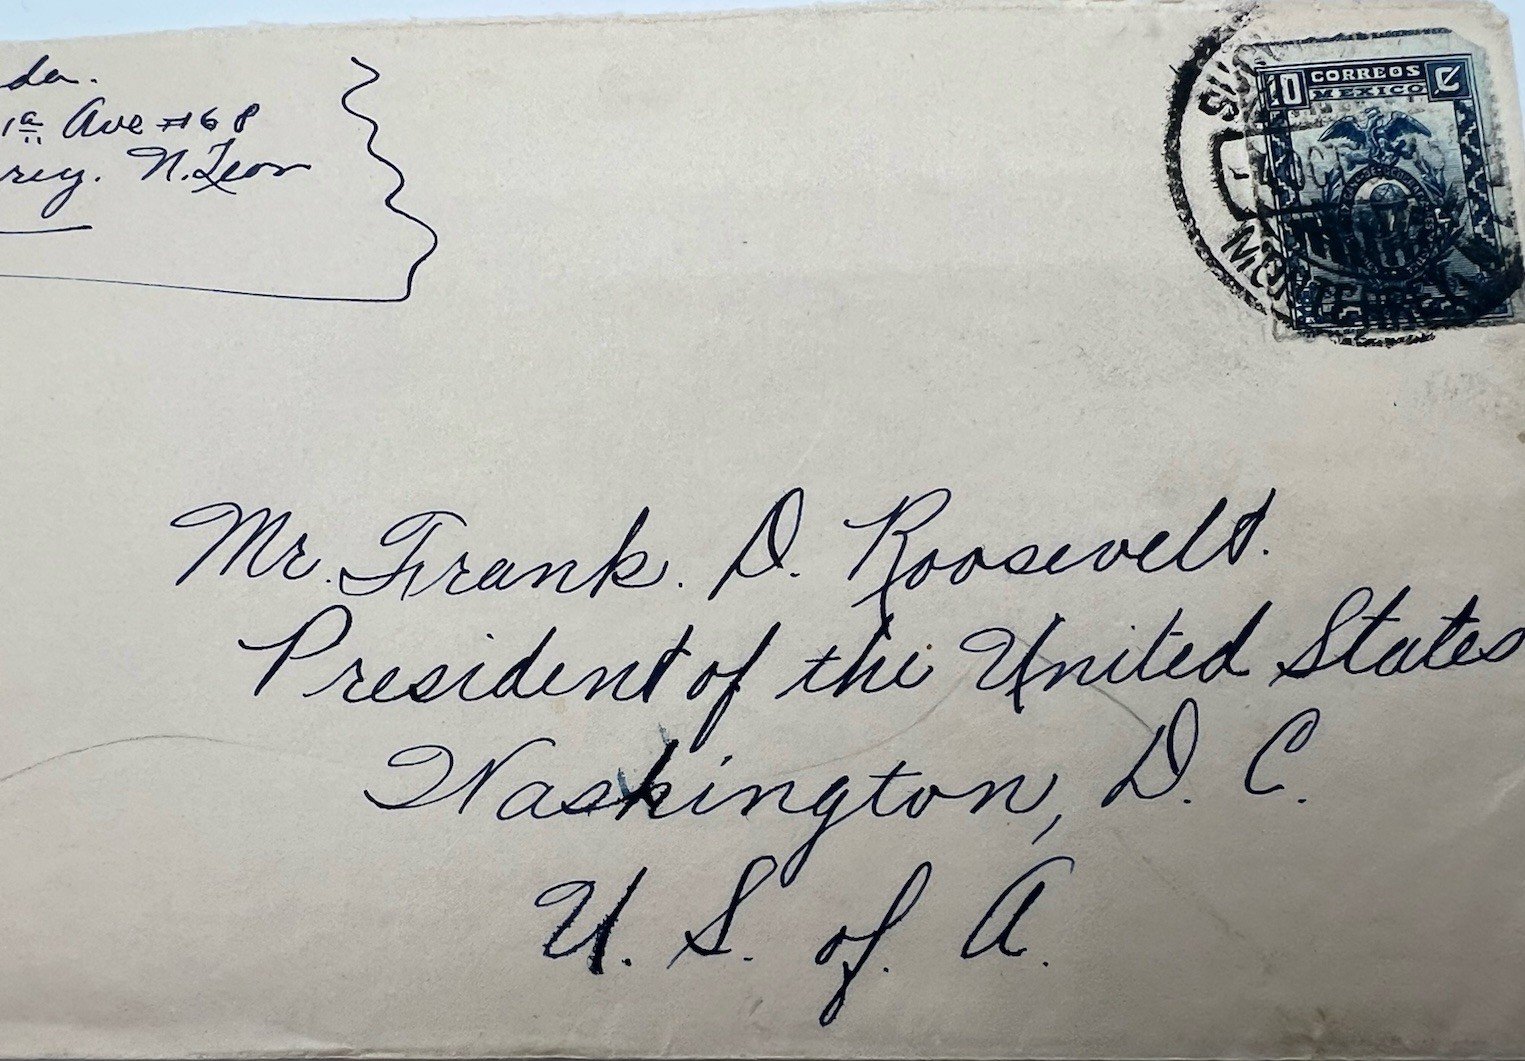 da.
1ª Ave #68
rey. N. Leon
10 CORREOS C
MEXICO
MONTERREY
Mr. Frank. D. Roosevelt.
President of the United States
Washington, D. C.
U. S. of. A.